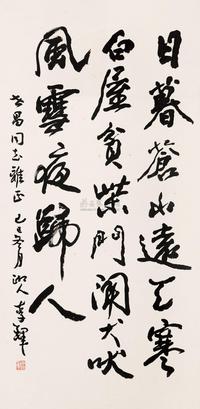 日暮蒼山遠天寒
白屋貧柴門聞犬吠
風雪夜歸人
昌同志雅正 己巳冬月 李鐸